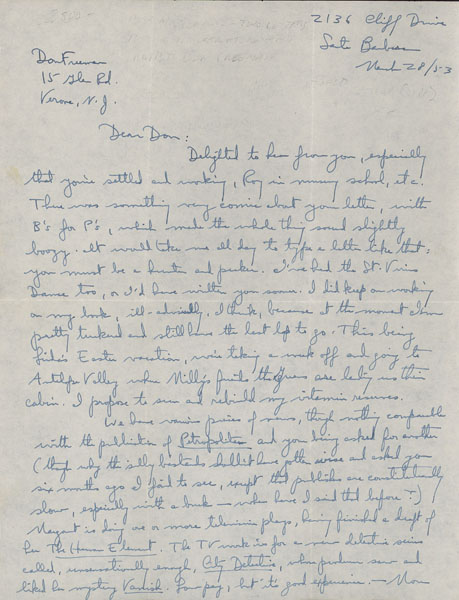 2136 Cliff Drive
Santa Barbara
March 28/53
Don Freeman
15 Glen Rd.
Verona, N.J.
Dear Don:
Delighted to hear from you, especially
that you're settled and working, Roy in nursery school, etc.
There was something very comic about your letter, with
B's for P's, which made the whole thing sound slightly
boozy. It would take me all day to type a letter like that:
you must be a hunter and pecker. I've had the St. Vitus
Dance too, or I'd have written you sooner. I did keep on working
on my book, ill-advisedly, I think, because at the moment I am
pretty tuckered and still have the last lap to go. This being
Linda's Easter vacation, we're taking a week off and going to
Antelope Valley where Milly's friends the are letting us their
cabin. I propose to sun and rebuild my vitamin reserves.
We have various pieces of news, though nothing comparable
with the publication of Petropolitan and you being asked for another
(though why the silly bastards shouldn't have gotten wise and asked you
six months ago I fail to see, except that publishers are constitutionally
slow, especially with a buck — where have I said that before?)
Margaret is doing one or more television plays, having finished a draft of
her The Human Element. The TV work is for a new detective series
called, unsensationally enough, City Detective, whose producer seen and
liked her mystery Vanish. Low pay, but it's good experience. — Mom